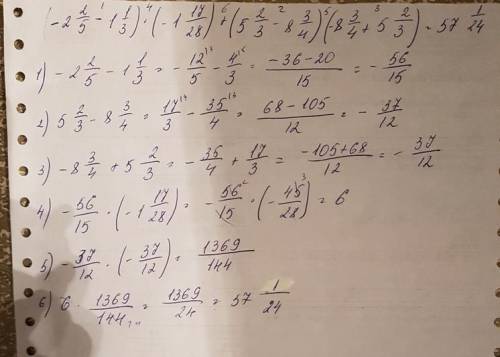 (-2 2/5 - 1 1/3) · (-1 17/28) · (5 2/3 - 8 3/4) · (-8 3/4 + 5 2/3) = 57 1/24
1) -2 2/5 - 1 1/3 = -12/5 - 4/3 = (-36-20)/15 = -56/15
2) 5 2/3 - 8 3/4 = 17/3 - 35/4 = (68-105)/12 = -37/12
3) -8 3/4 + 5 2/3 = -35/4 + 17/3 = (-105+68)/12 = -37/12
4) -56/15 · (-1 17/28) = -56/15 · (-45/28) = 6
5) -37/12 · (-37/12) = 1369/144
6) 6 · 1369/144 = 1369/24 = 57 1/24